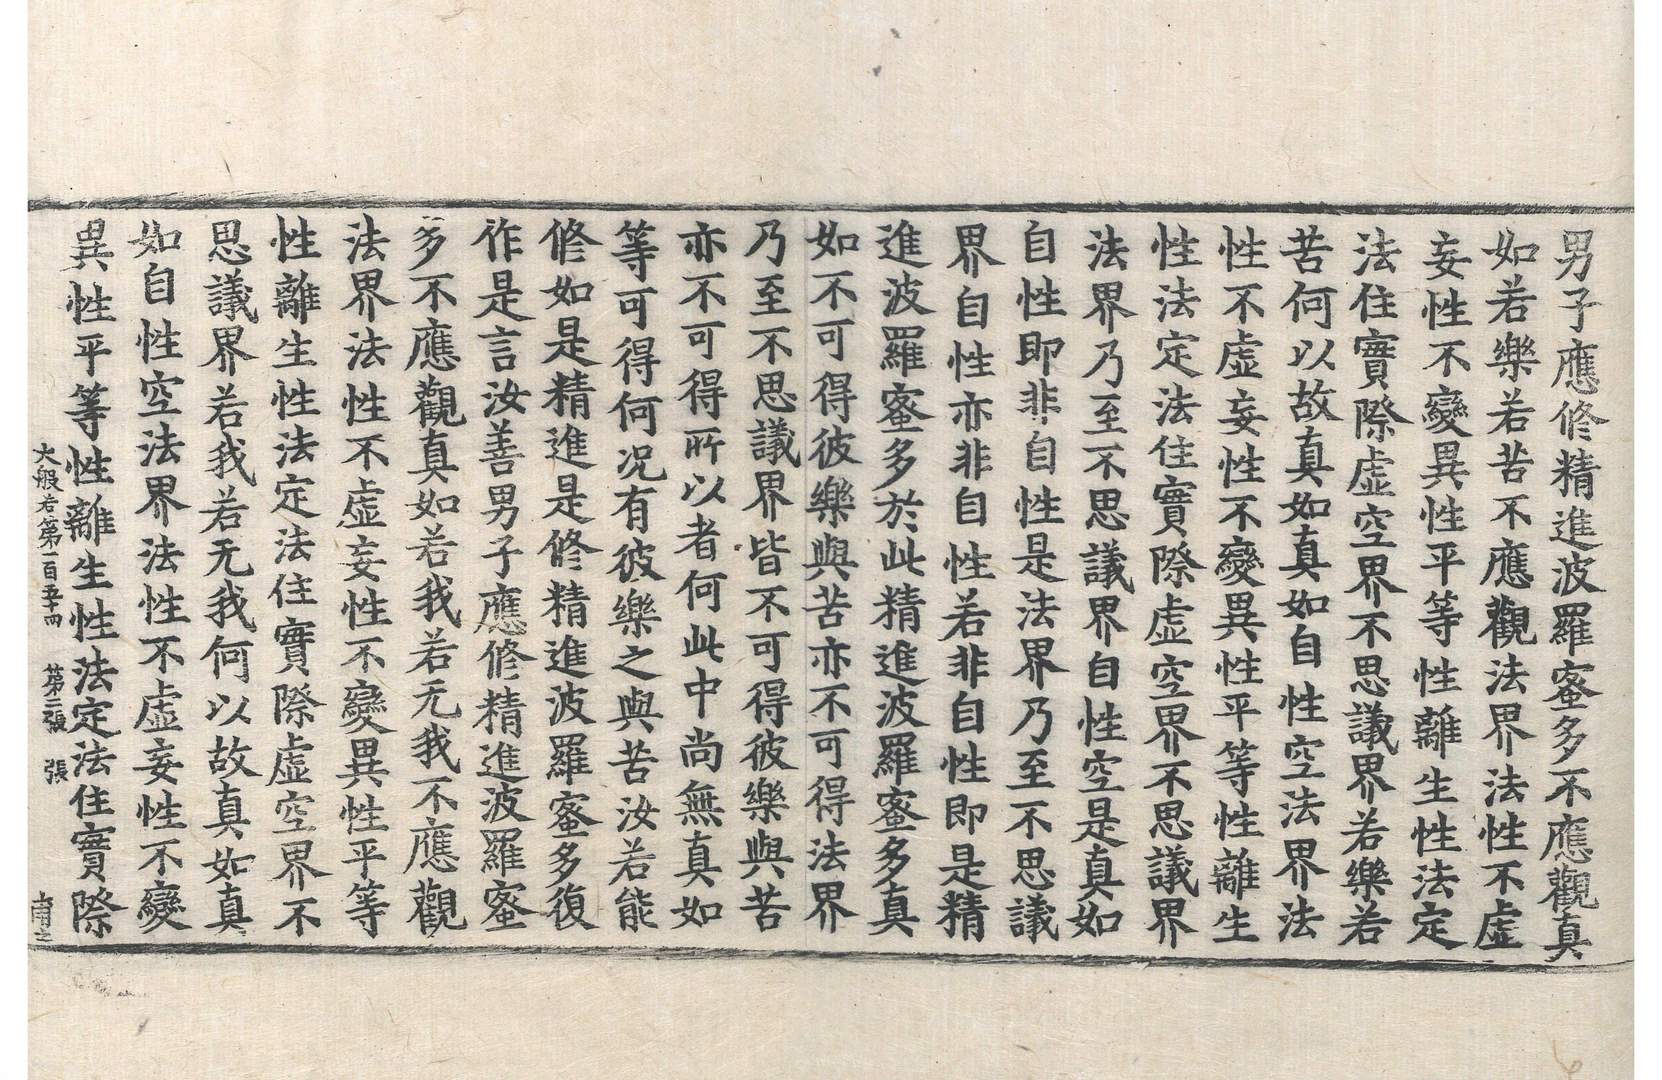 男子應修精進波羅蜜多不應觀真
如若樂若苦不應觀法界法性不虛
妄性不變異性平等性離生性法定
法住實際虛空界不思議界若樂若
苦何以故真如真如自性空法界法
性不虛妄性不變異性平等性離生
性法定法住實際虛空界不思議界
法界乃至不思議界自性空是真如
自性即非自性是法界乃至不思議
界自性亦非自性若非自性即是精
進波羅蜜多於此精進波羅蜜多真
如不可得彼樂與苦亦不可得法界
乃至不思議界皆不可得彼樂與苦
亦不可得所以者何此中尚無真如
等可得何况有彼樂之與苦汝若能
修如是精進是修精進波羅蜜多復
作是言汝善男子應修精進波羅蜜
多不應觀真如若我若无我不應觀
法界法性不虛妄性不變異性平等
性離生性法定法住實際虛空界不
思議界若我若无我何以故真如真
如自性空法界法性不虛妄性不變
異性平等性離生性法定法住實際
大般若第一百五十四 第二張 張